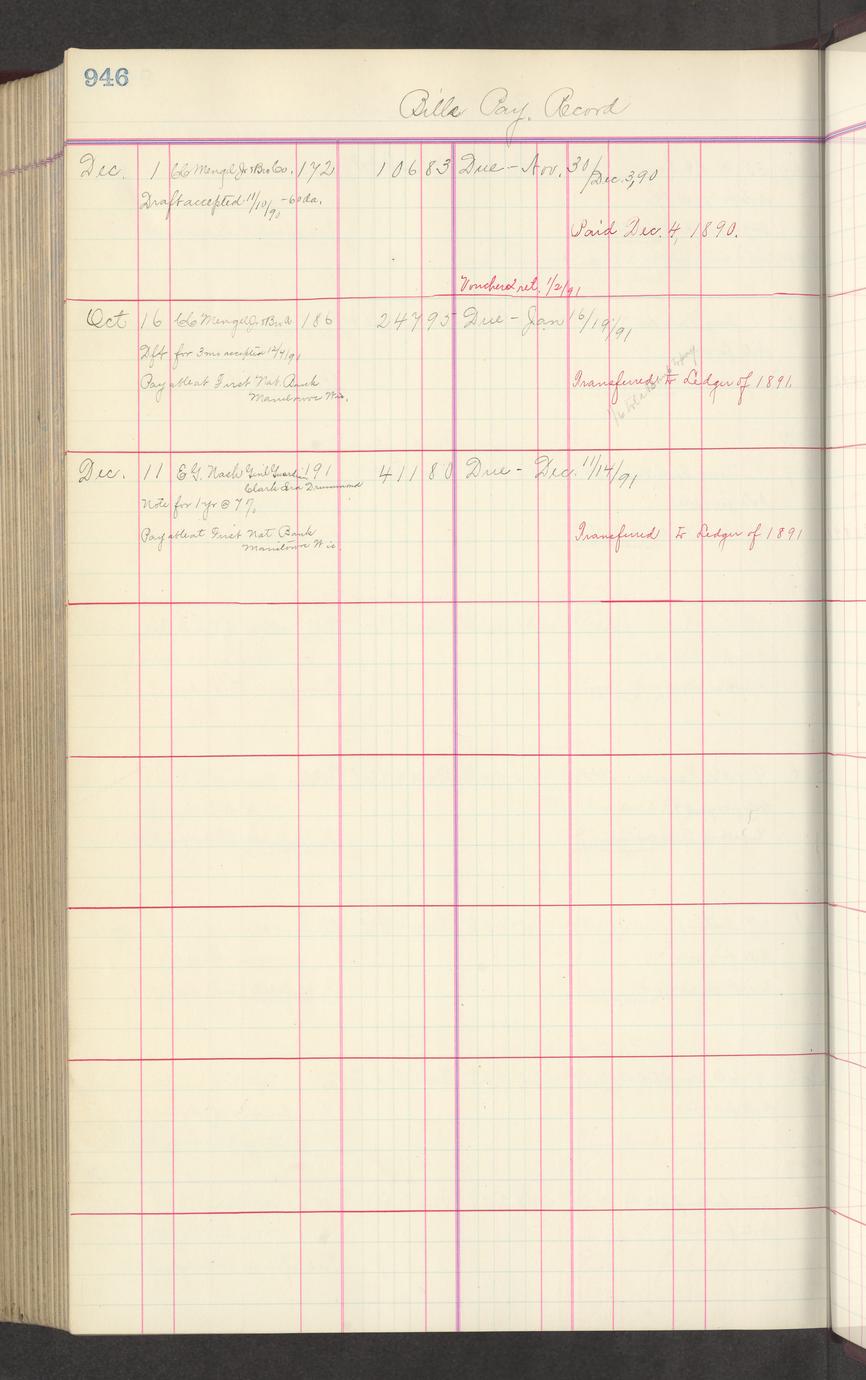 946
Bills Pay. Record
Dec. 1 CC Mengel Jr & Bro Co. 172 106 83 Due - Nov. 30/Dec. 3, 90
Draft accepted 11/10/90 - 60 da.
Paid Dec. 4, 1890.
Voucher & ret. 1/2/91
Oct 16 CC Mengel Jr & Bro Co 186 247 95 Due - Jan 16/19/91
Dft for 3 mos accepted
Payable at First Nat. Bank
Manitowoc Wis.
Transferred to Ledger of 1891.
Dec. 11 E G. Nash Genl Guardian 191 411 80 Due - Dec. 11/14/91
Clark Ira Drummond
Note for 1 yr @ 7%
Payable at First Nat Bank
Manitowoc Wis.
Transferred to Ledger of 1891